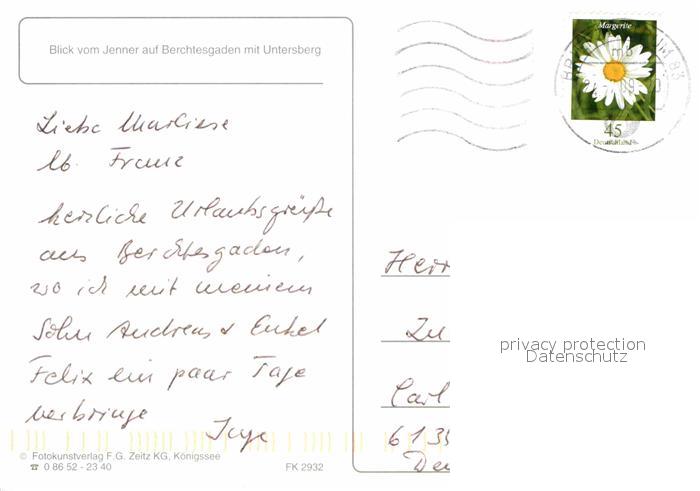 Blick vom Jenner auf Berchtesgaden mit Untersberg
Margerite
45
Deutschland
Liebe Marliese
lb. Franz
herzliche Urlaubsgrüße
aus Berchtesgaden,
wo ich mit meinem
Sohn Andreas & Enkel
Felix ein paar Tage
verbringe
Inge
Herr
Zu
Carl
6135
Deu
privacy protection
Datenschutz
© Fotokunstverlag F.G. Zeitz KG, Königssee
☎ 0 86 52 - 23 40
FK 2932